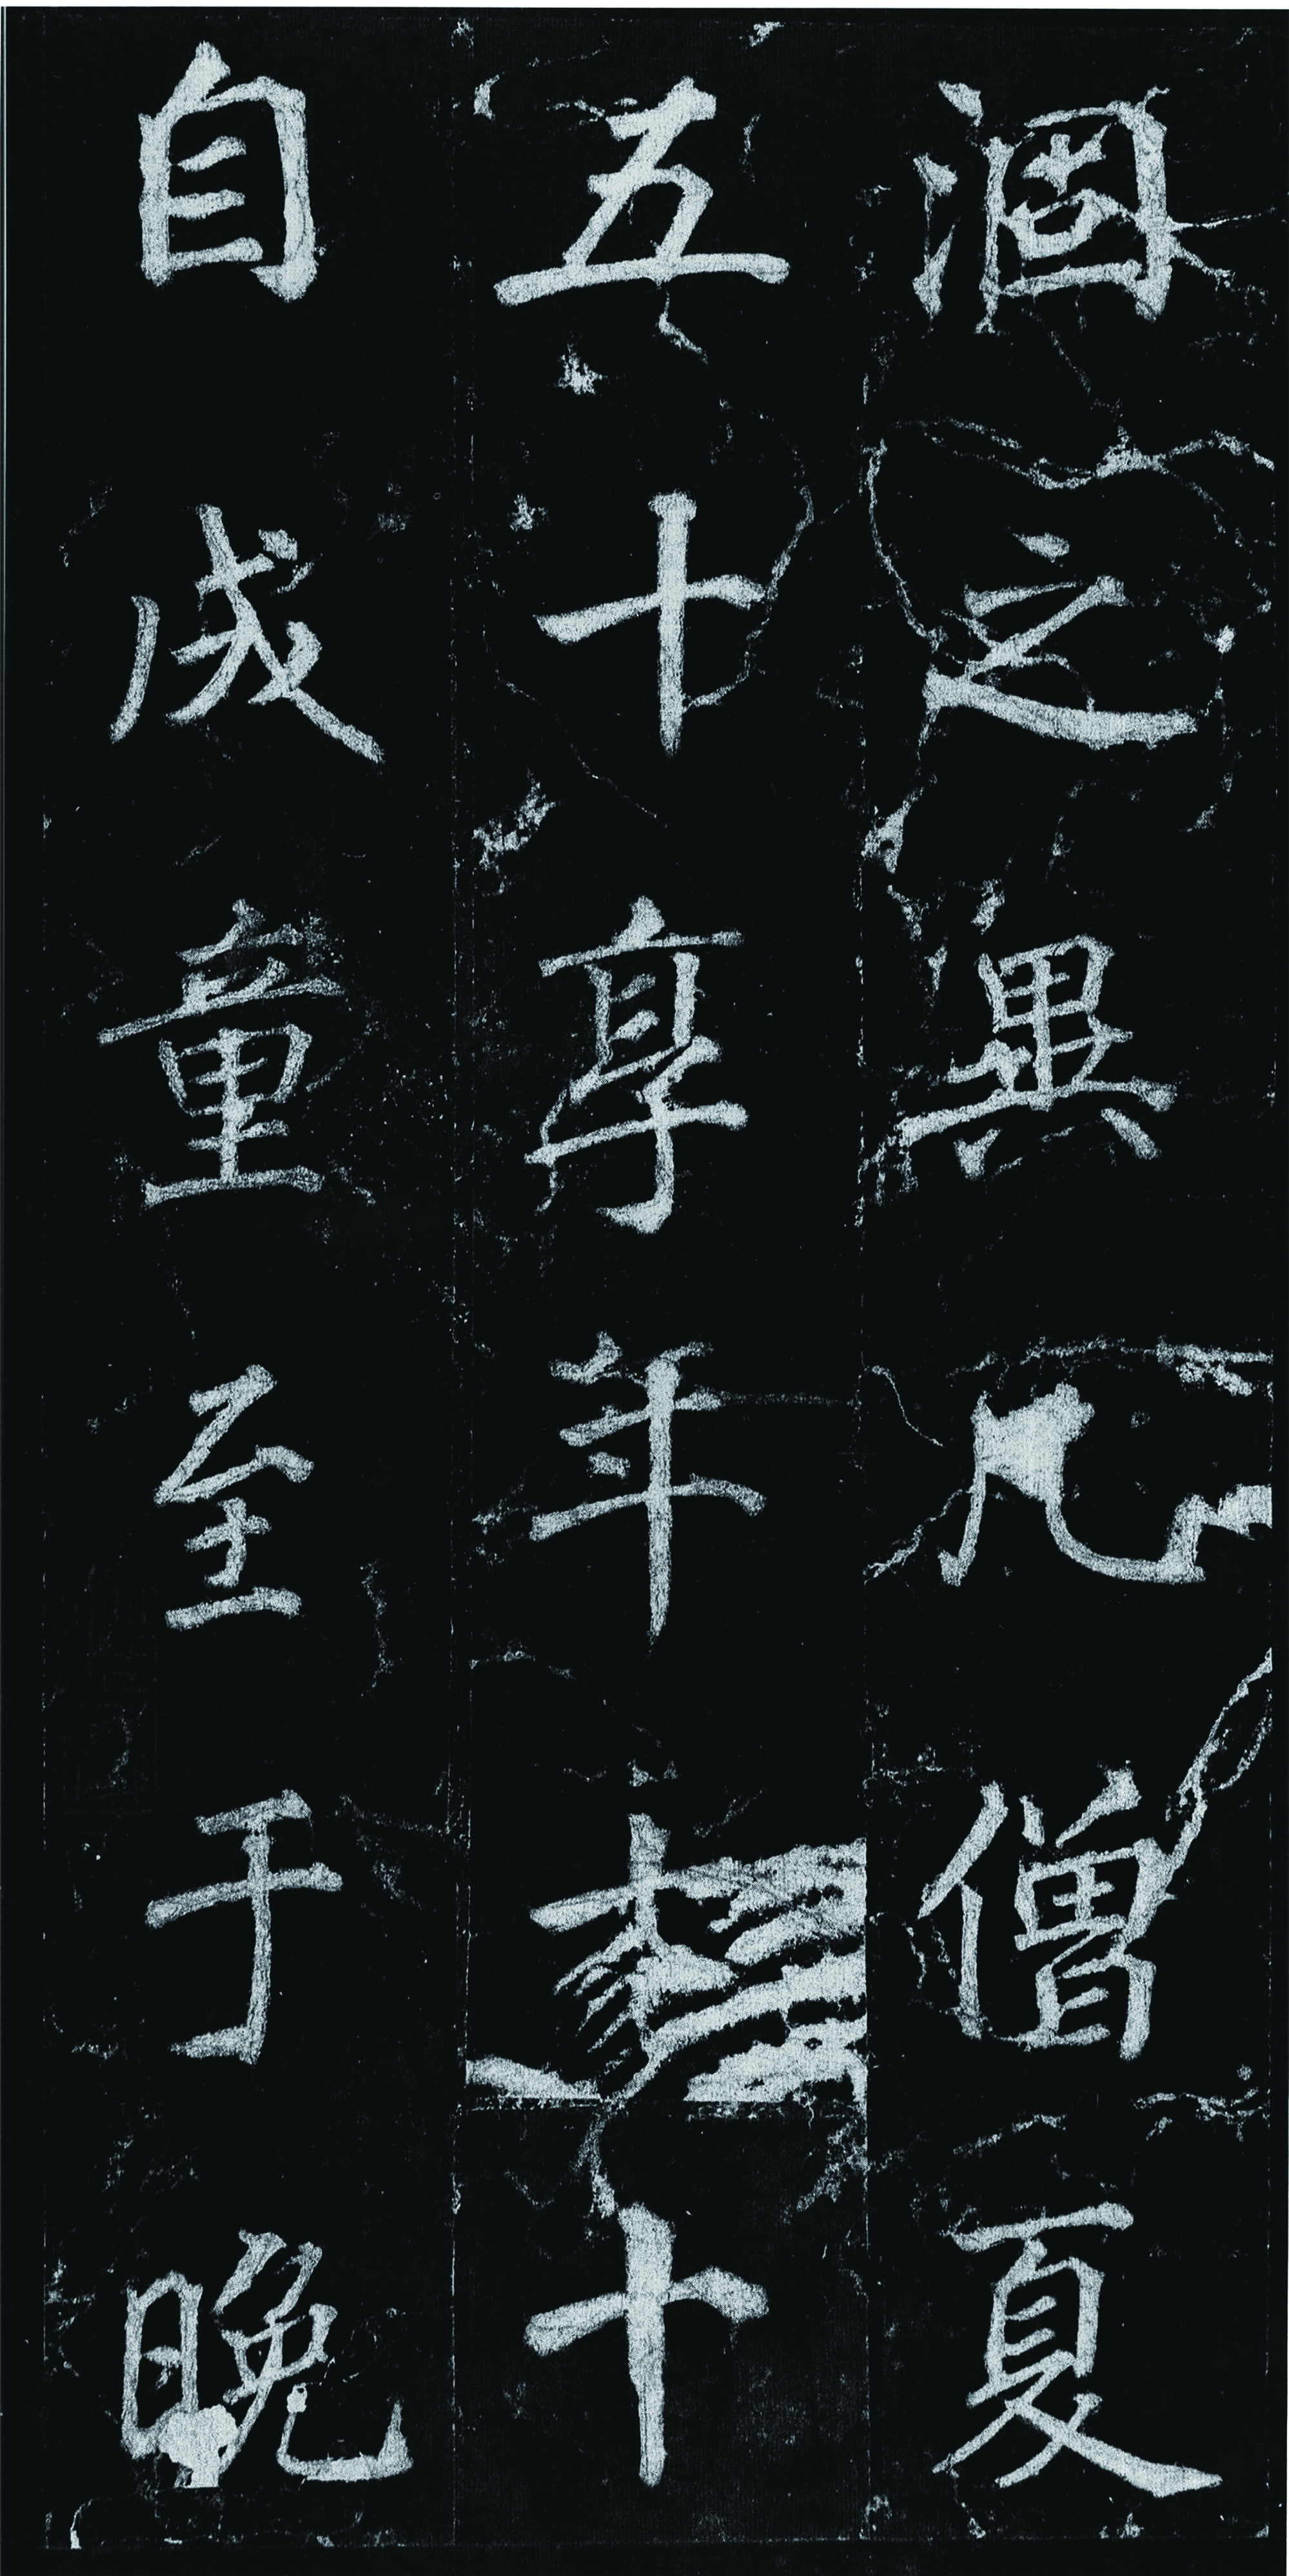 涸之異凡僧夏
五十享年十
自成童至于晚